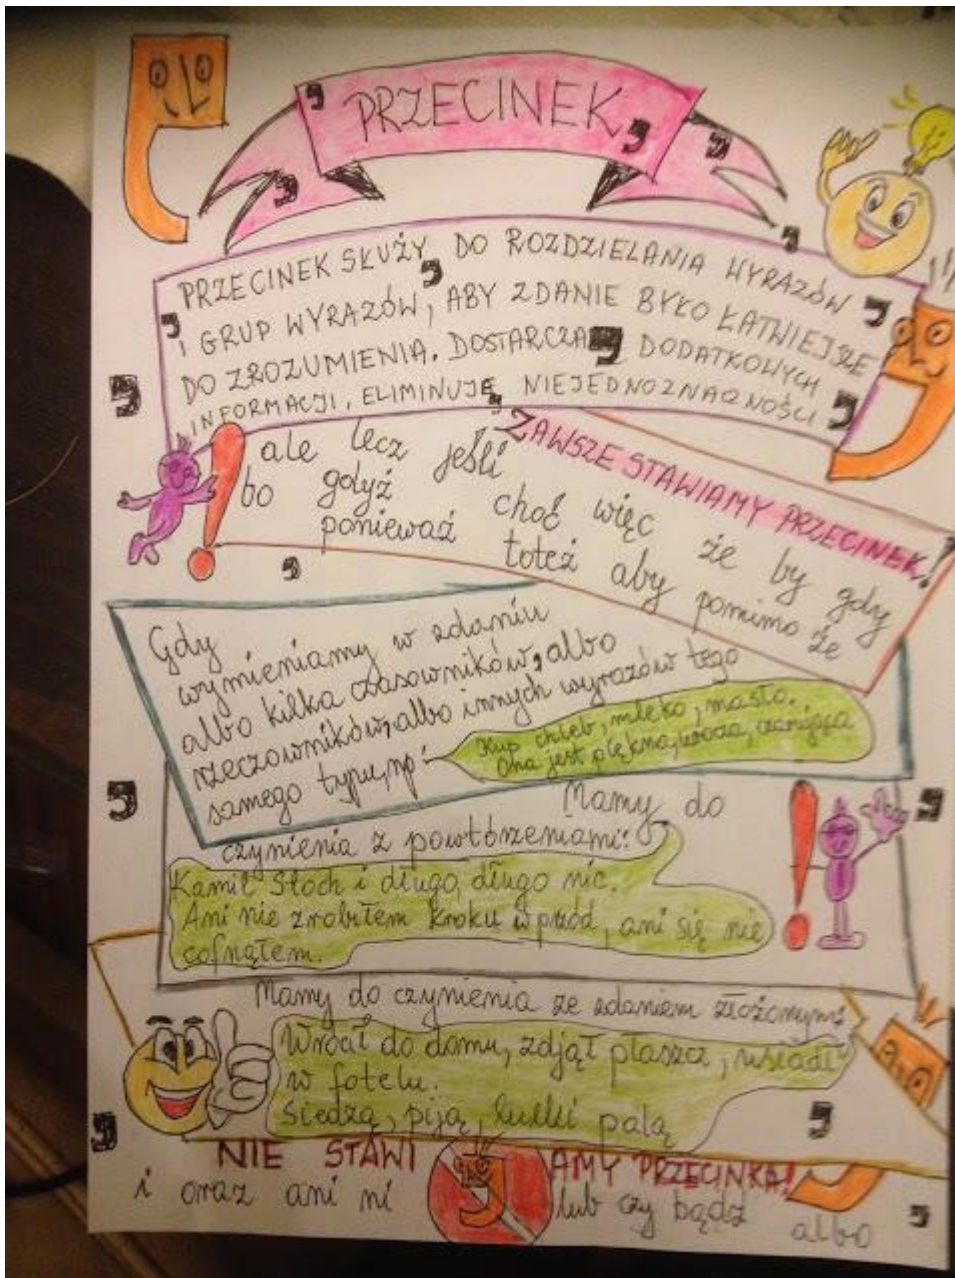 PRZECINEK
PRZECINEK SŁUŻY DO ROZDZIELANIA WYRAZÓW
I GRUP WYRAZÓW, ABY ZDANIE BYŁO ŁATWIEJSZE
DO ZROZUMIENIA. DOSTARCZA DODATKOWYCH
INFORMACJI, ELIMINUJE NIEJEDNOZNACZNOŚCI
ZAWSZE STAWIAMY PRZECINEK!
ale lecz jeśli
bo gdyż choć więc że by gdy
ponieważ toteż aby pomimo że
Gdy
wymieniamy w zdaniu
albo kilka czasowników, albo
rzeczowników, albo innych wyrazów tego
samego typu, np:
Kup chleb, mleko, masło.
Ona jest piękna, urocza, czarująca
Mamy do
czynienia z powtórzeniami:
Kamil Stoch i długo, długo nic.
Ani nie zrobiłem kroku w przód, ani się nie
cofnąłem.
Mamy do czynienia ze zdaniem złożonym:
Wrócił do domu, zdjął płaszcz, usiadł
w fotelu.
Siedzą, piją, lulki palą
NIE STAWIAMY PRZECINKA!
i oraz ani ni lub czy bądź albo